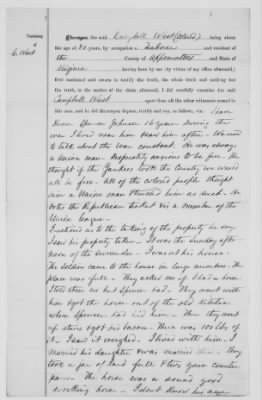 Testimony
of
C. West
Whereupon, the said Campbell West (Colored), being about
the age of 22 years, by occupation a Laborer and resident of
the County of Appomattox and State of
Virginia having been by me (by virtue of my office aforesaid)
first cautioned and sworn to testify the truth, the whole truth and nothing but
the truth, in the matter of the claim aforesaid, I did carefully examine the said
Campbell West apart from all the other witnesses named in
this case, and he did thereupon depose, testify and say, as follows, viz: I have
Known Spencer Johnson 16 years. During the
war I lived near him years after. We used
to talk about the war constant. He was always
a Union man. Especially anxious to be free. He
thought if the Yankees took the Country we would
all be free. All of the colored people thought
him a Union man & trusted him as such. He
votes the Republican ticket & is a member of the
Union league.
Questioned as to the taking of the property he says
I saw his property taken. It was the Sunday after-
noon of the surrender. I was at his house.
The Soldiers came to the house in large numbers. The
place was full. They asked me if I had a horse
I told them no but Spencer had. They went with
him & got the horse out of the old kitchen
where Spencer had hid him. Then they went
up stairs & got his bacon. There was 100 lbs of
it. I saw it weighed. I lived with him. I
married his daughter & was married then. They
took a jar of lard full & two yarn counter
panes. The horse was a sound good
working horse. I don't know his age